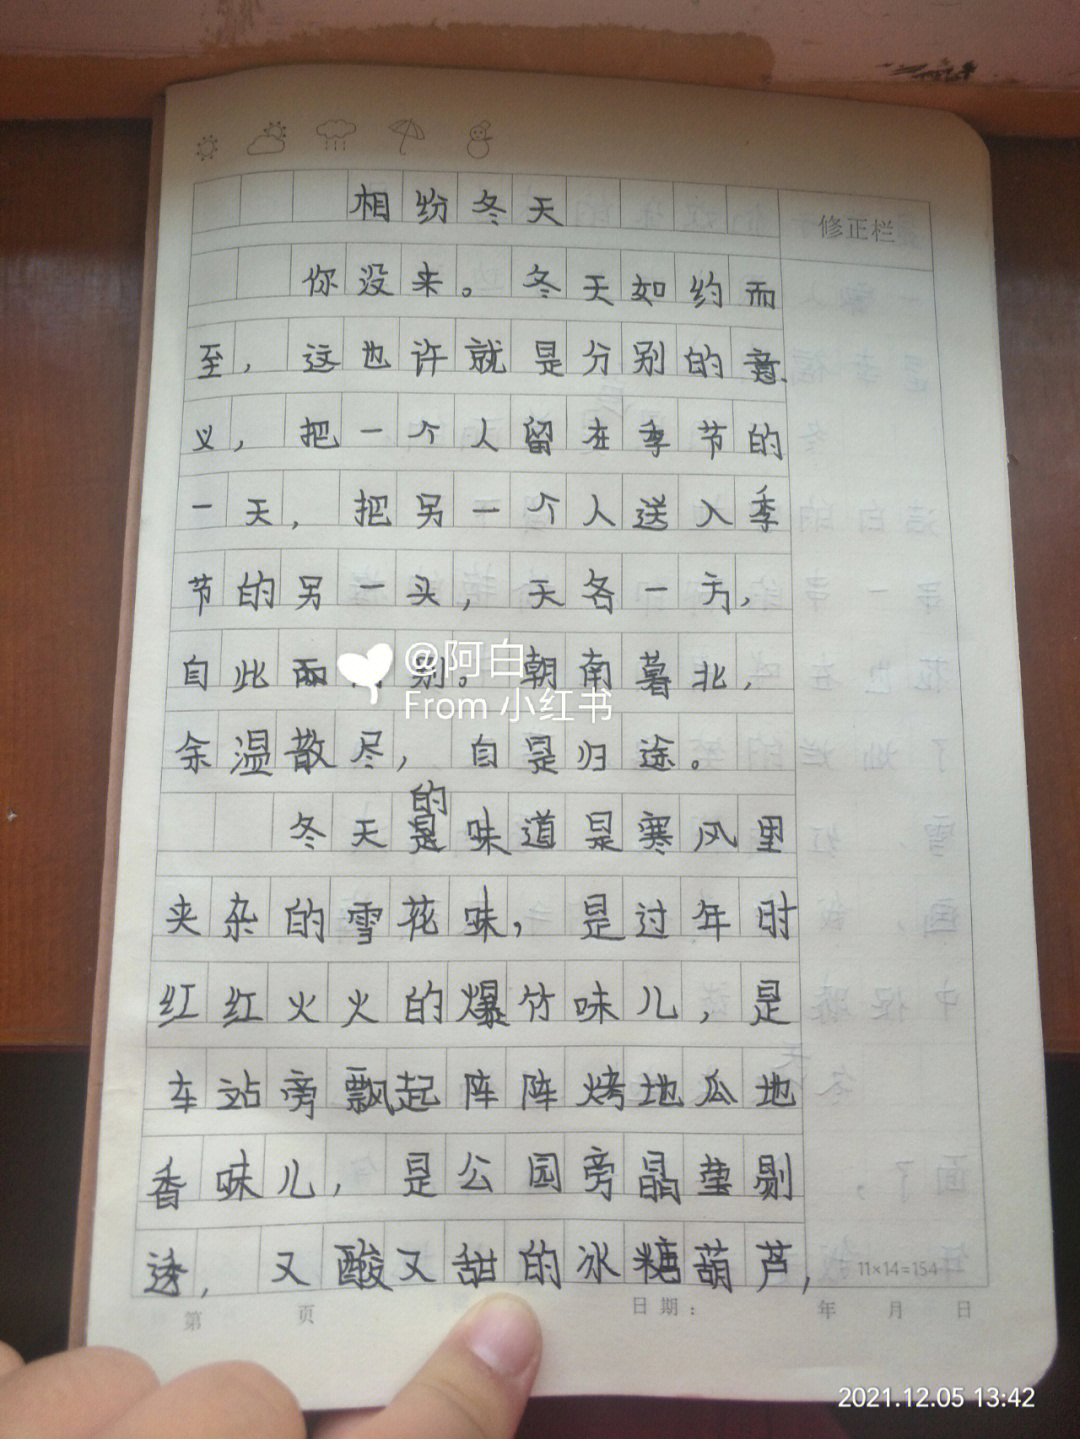 相纷冬天
修正栏
你没来。冬天如约而
至，这也许就是分别的意
义，把一个人留在季节的
一天，把另一个人送入季
节的另一头，天各一方，
自此而别。朝南暮北，
@阿白
From 小红书
余温散尽，自是归途。
的
冬天是味道是寒风里
夹杂的雪花味，是过年时
红红火火的爆竹味儿，是
车站旁飘起阵阵烤地瓜地
香味儿，是公园旁晶莹剔
透，又酸又甜的冰糖葫芦，
11×14=154
第 页 日期： 年 月 日
2021.12.05 13:42